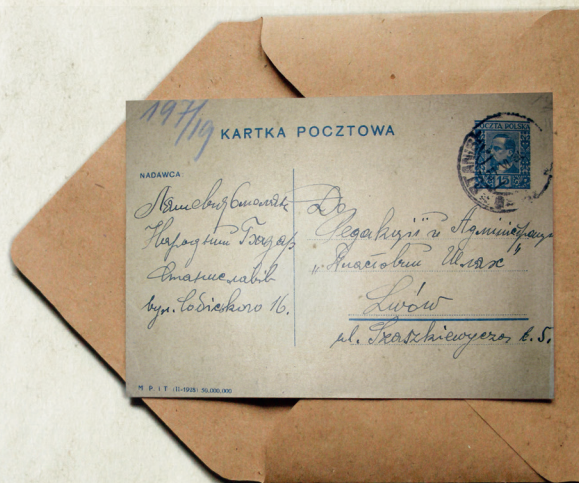 197/19
KARTKA POCZTOWA
POCZTA POLSKA
15
NADAWCA:
Народний Базар
Станиславів
вул. Собіского 16.
До
Редакциї и Админістрациї
"Пластовий Шлях"
Lwów
ul. Szaszkiewycza ł. 5.
M. P. i T. (II-1928) 50.000.000